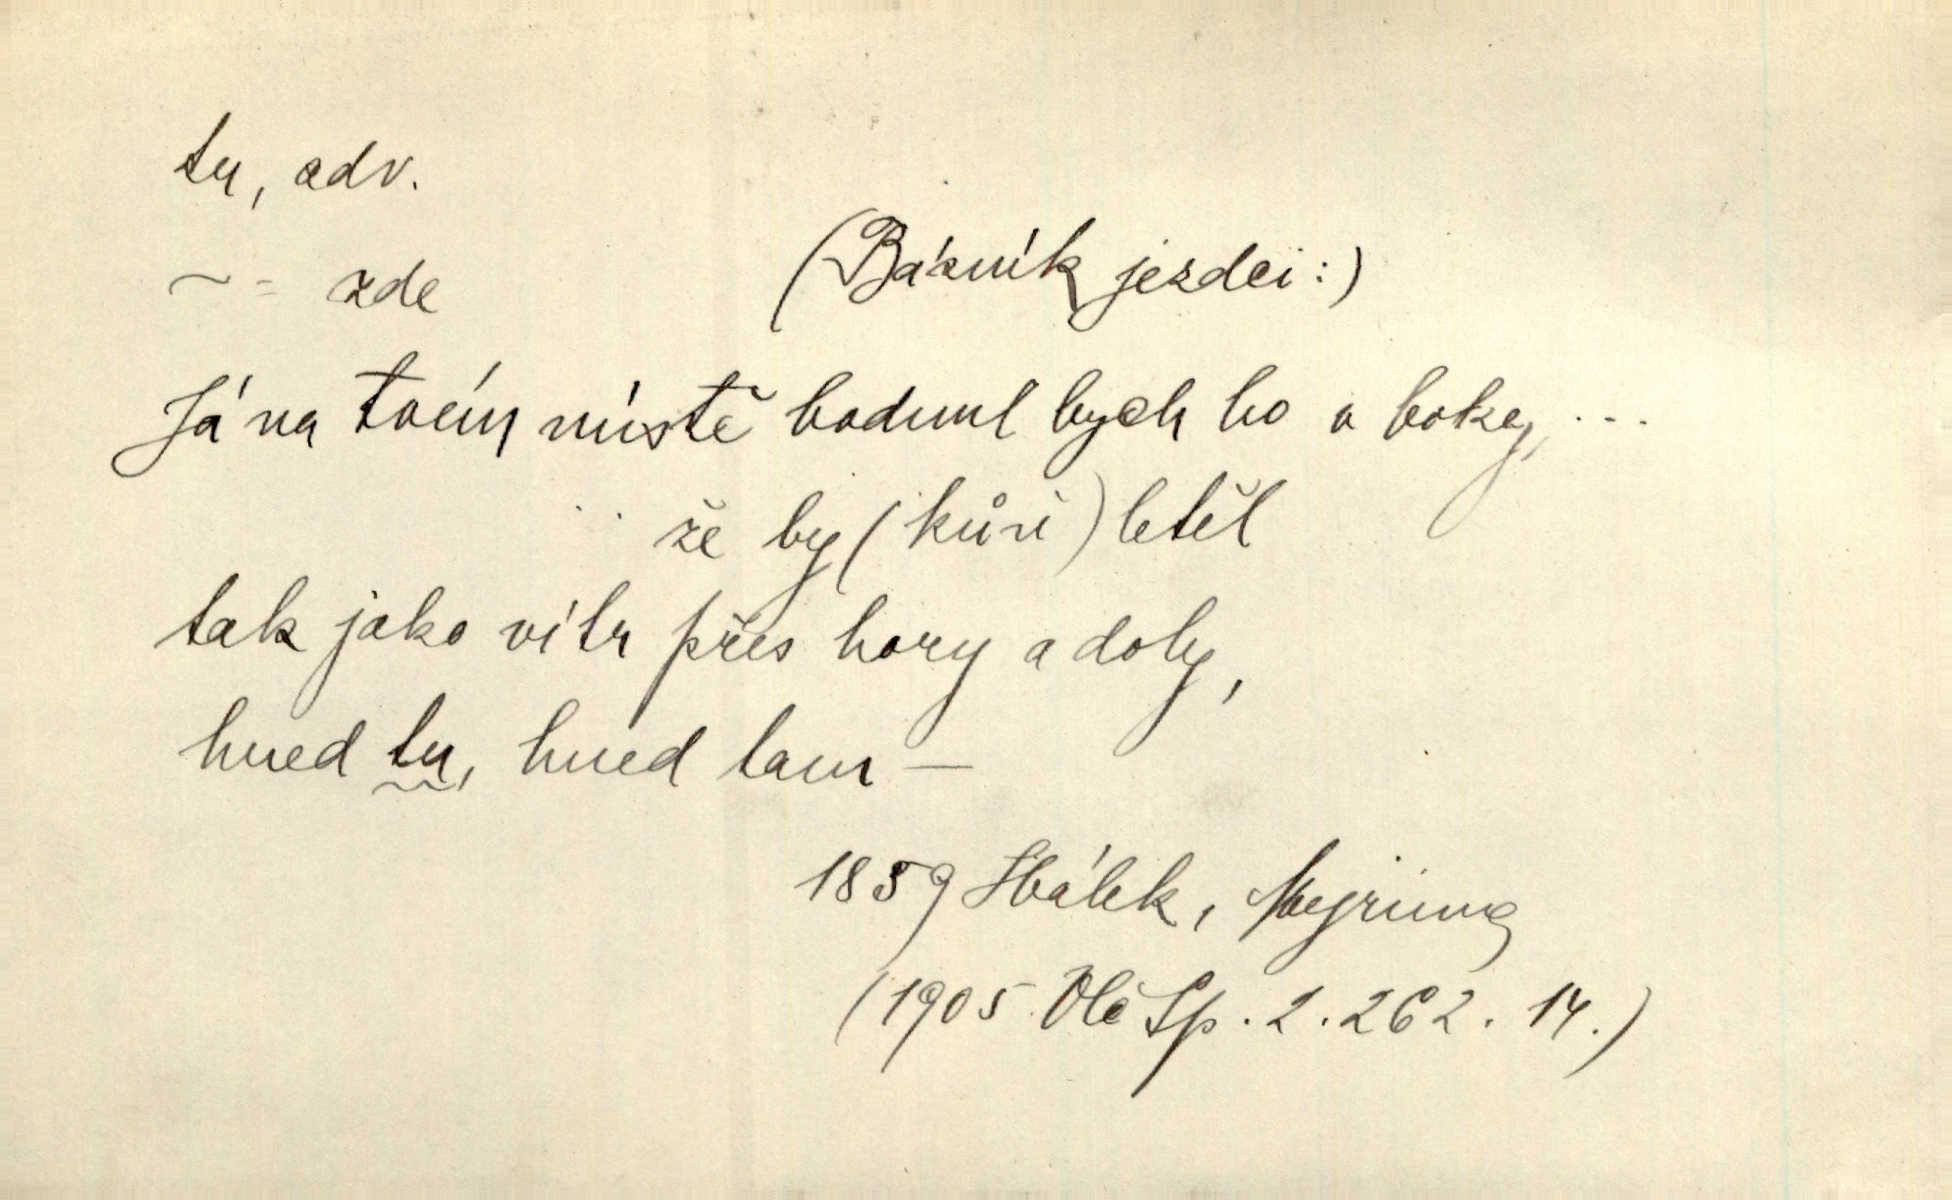 tu, adv.
~ = zde
(Básník jezdci:)
Já na tvém místě bodnul bych ho v boky, ...
.. že by (kůň) letěl
tak jako vítr přes hory a doly,
hned tu, hned tam —
1859 Hálek, Mejrima
(1905 Ol Sp. 2. 262. 14.)